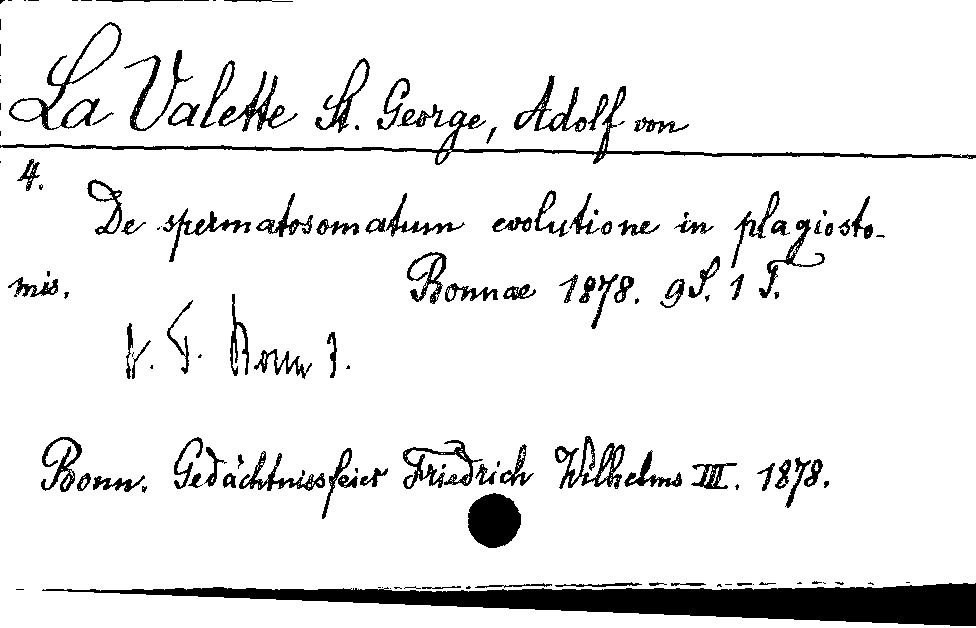 La Valette St. George, Adolf von
4.
De spermatosomatum evolutione in plagiosto-
mis. Bonnae 1878. 9 S. 1 T.
Bonn 3.
Bonn. Gedächtnissfeier Friedrich Wilhelms III. 1878.